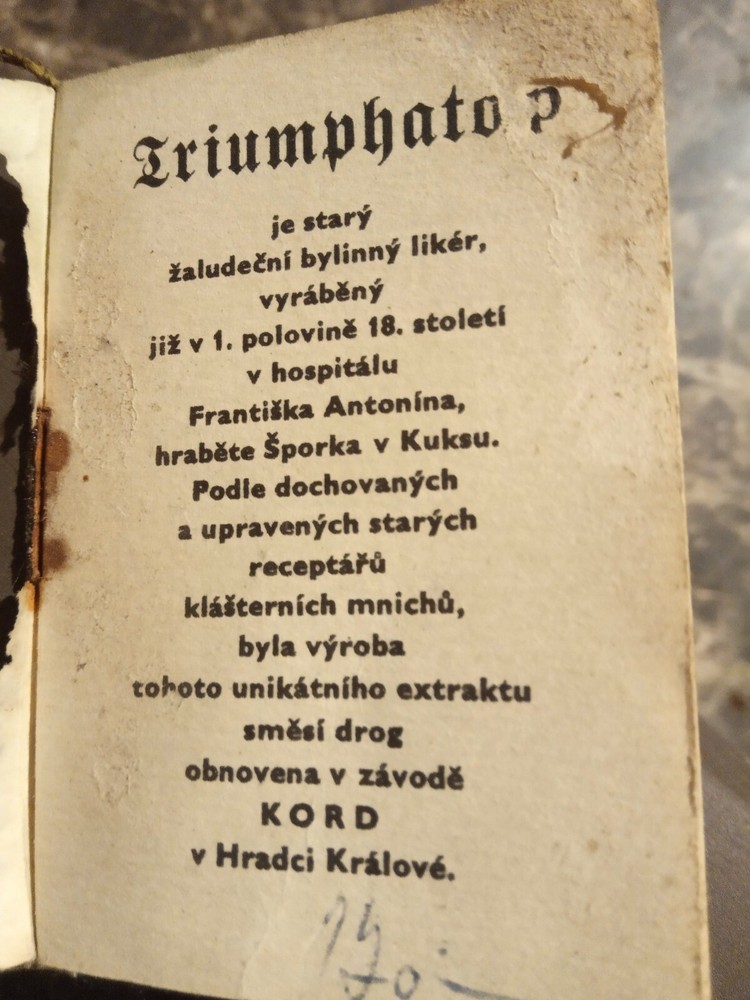 Triumphator
je starý
žaludeční bylinný likér,
vyráběný
již v 1. polovině 18. století
v hospitálu
Františka Antonína,
hraběte Šporka v Kuksu.
Podle dochovaných
a upravených starých
receptářů
klášterních mnichů,
byla výroba
tohoto unikátního extraktu
směsí drog
obnovena v závodě
KORD
v Hradci Králové.